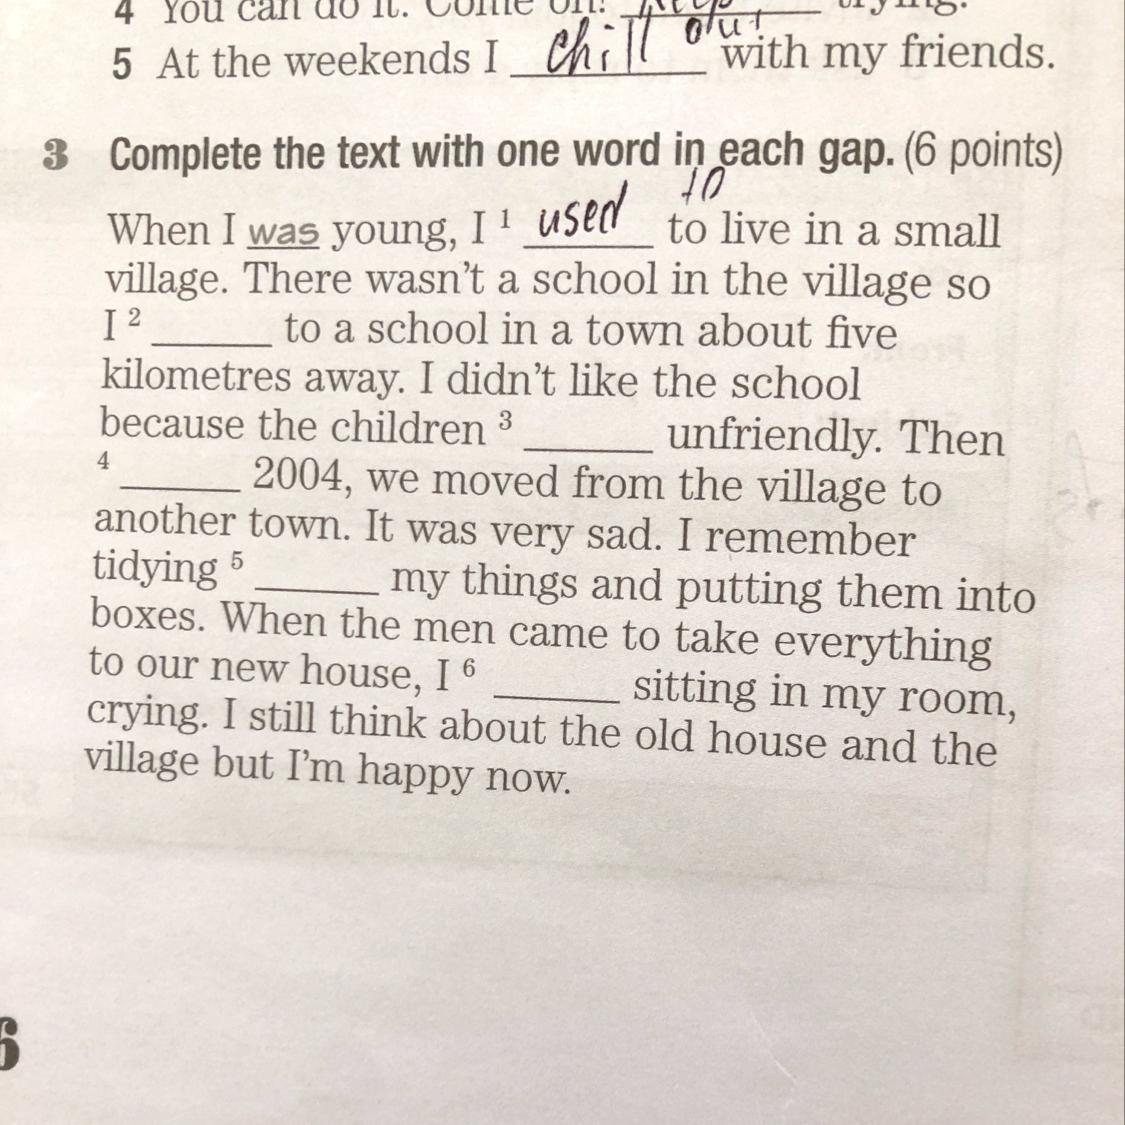 4 You can do it. Come on! keep trying.
5 At the weekends I chill out with my friends.
3 Complete the text with one word in each gap. (6 points)
to
When I was young, I 1 used to live in a small
village. There wasn't a school in the village so
I 2 ______ to a school in a town about five
kilometres away. I didn't like the school
because the children 3 ______ unfriendly. Then
4 ______ 2004, we moved from the village to
another town. It was very sad. I remember
tidying 5 ______ my things and putting them into
boxes. When the men came to take everything
to our new house, I 6 ______ sitting in my room,
crying. I still think about the old house and the
village but I'm happy now.
6